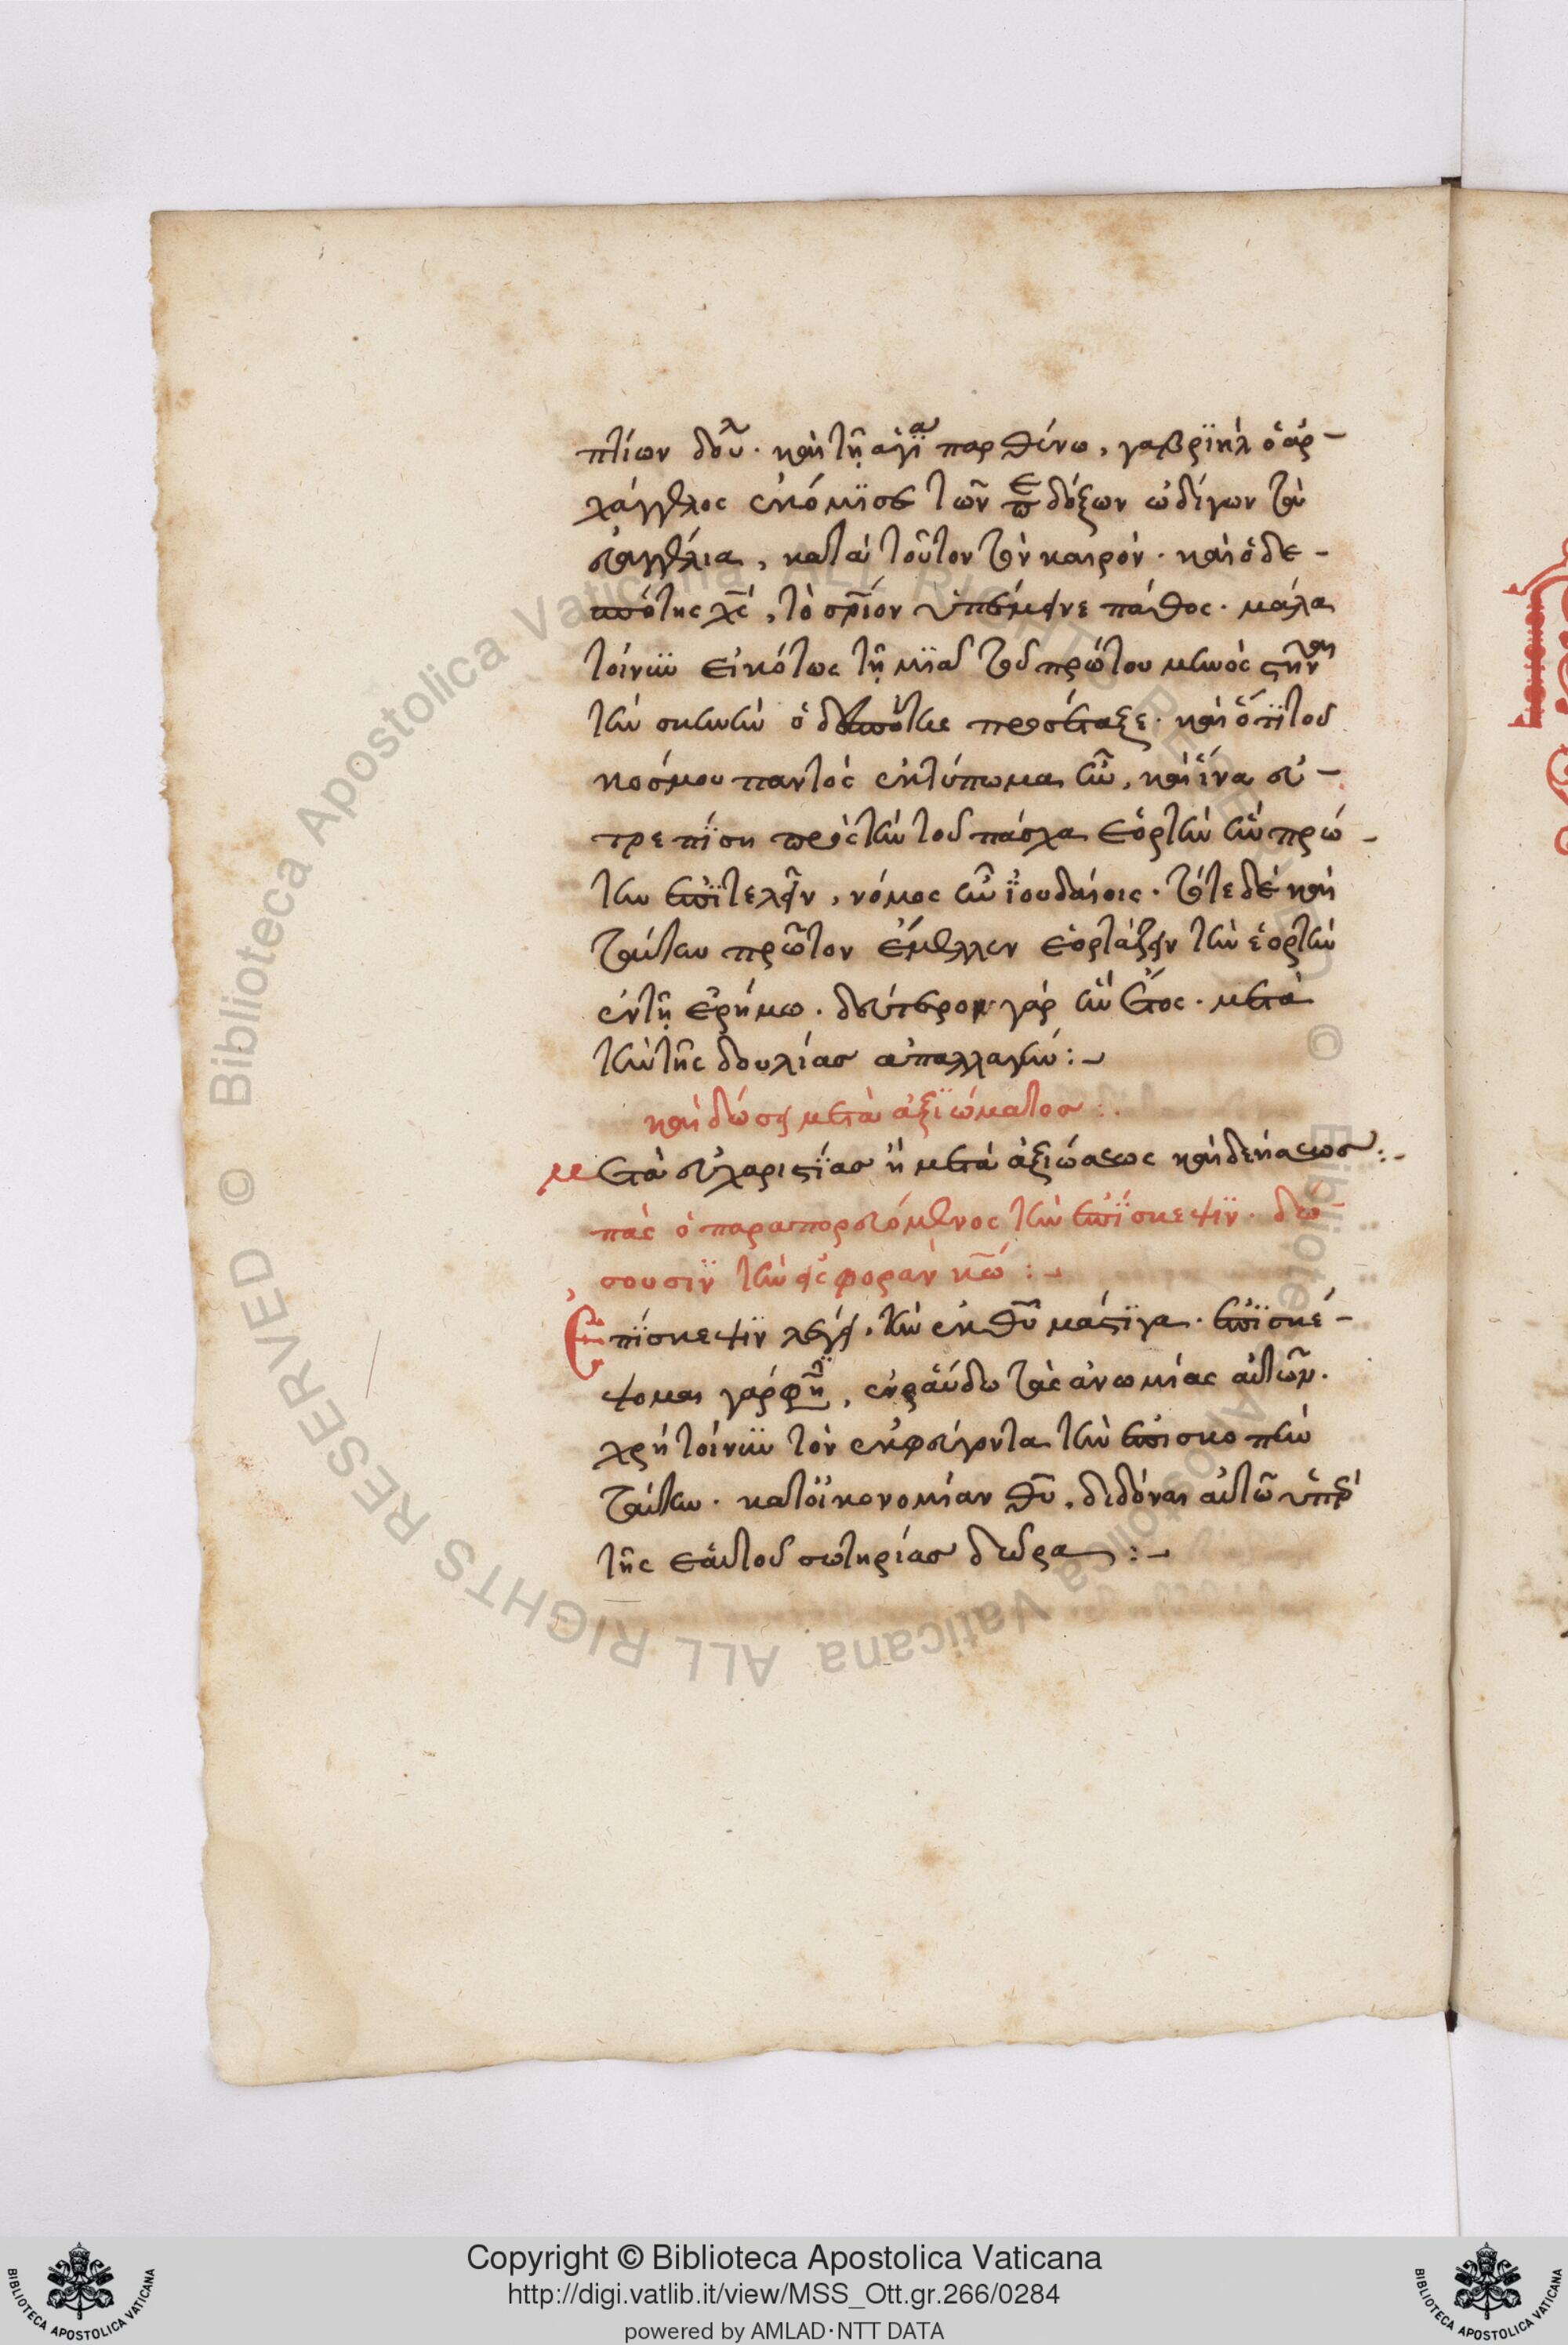 πτίων δου^λ. καὶ τῆ ἁγί^α παρθένω, γαβριὴλ ὁ ἀρ-
χάγγελος ἐκόμισε τῶν ἐπ δόξων ὠδίνων τὰ
εὐαγγέλια, κατὰ τοῦτον τὸν καιρόν. καὶ ὁ δε-
σπότης χς, τὸ σριον ὑπέμεινε πάθος. μάλα
τοίνυν εἰκότως τῆ μιᾶ τοῦ πρώτου μηνὸς στην^αι
τὴν σκηνὴν ὁ δεσπότης προσέταξε. καὶ ὅτι τοῦ
κόσμου παντὸς ἐκτύπωμα ἦν, καὶ ἵνα εὐ-
τρεπίση πρὸς τὴν τοῦ πάσχα ἑορτὴν ἣν πρώ-
την ἐπιτελεῖν, νόμος ἦν ἰουδαίοις. τότε δὲ καὶ
ταύτην πρῶτον ἔμελλον ἑορτάζειν τὴν ἑορτὴν
ἐν τῆ ἐρήμω. δεύτερον γὰρ ἦν ἔτος. μετὰ
τὴν τῆς δουλίας ἀπαλλαγήν:-
καὶ δώσει μετὰ ἀξιώματος:.
μετὰ εὐχαριστίας ἢ μετὰ ἀξιώσεως καὶ δεήσεως:-
πᾶς ὁ παραπορευόμενος τὴν ἐπίσκεψιν. δώ-
σουσιν τὴν εἰσφορὰν κω:-
Ἐπίσκεψιν λέγει, τὴν ἐκ θυ μάστιγα. ἐπισκέ-
ψομαι γάρ φη^σι, ἐν ράβδω τὰς ἀνομίας αὐτῶν.
χρὴ τοίνυν τὸν ἐκφεύγοντα τὴν ἐπισκοπὴν
ταύτην. κατ οἰκονομίαν θυ, διδόναι αὐτῶ ὑπὲρ
τῆς ἑαυτοῦ σωτηρίας δῶρα:-
Copyright © Biblioteca Apostolica Vaticana
http://digi.vatlib.it/view/MSS_Ott.gr.266/0284
powered by AMLAD·NTT DATA